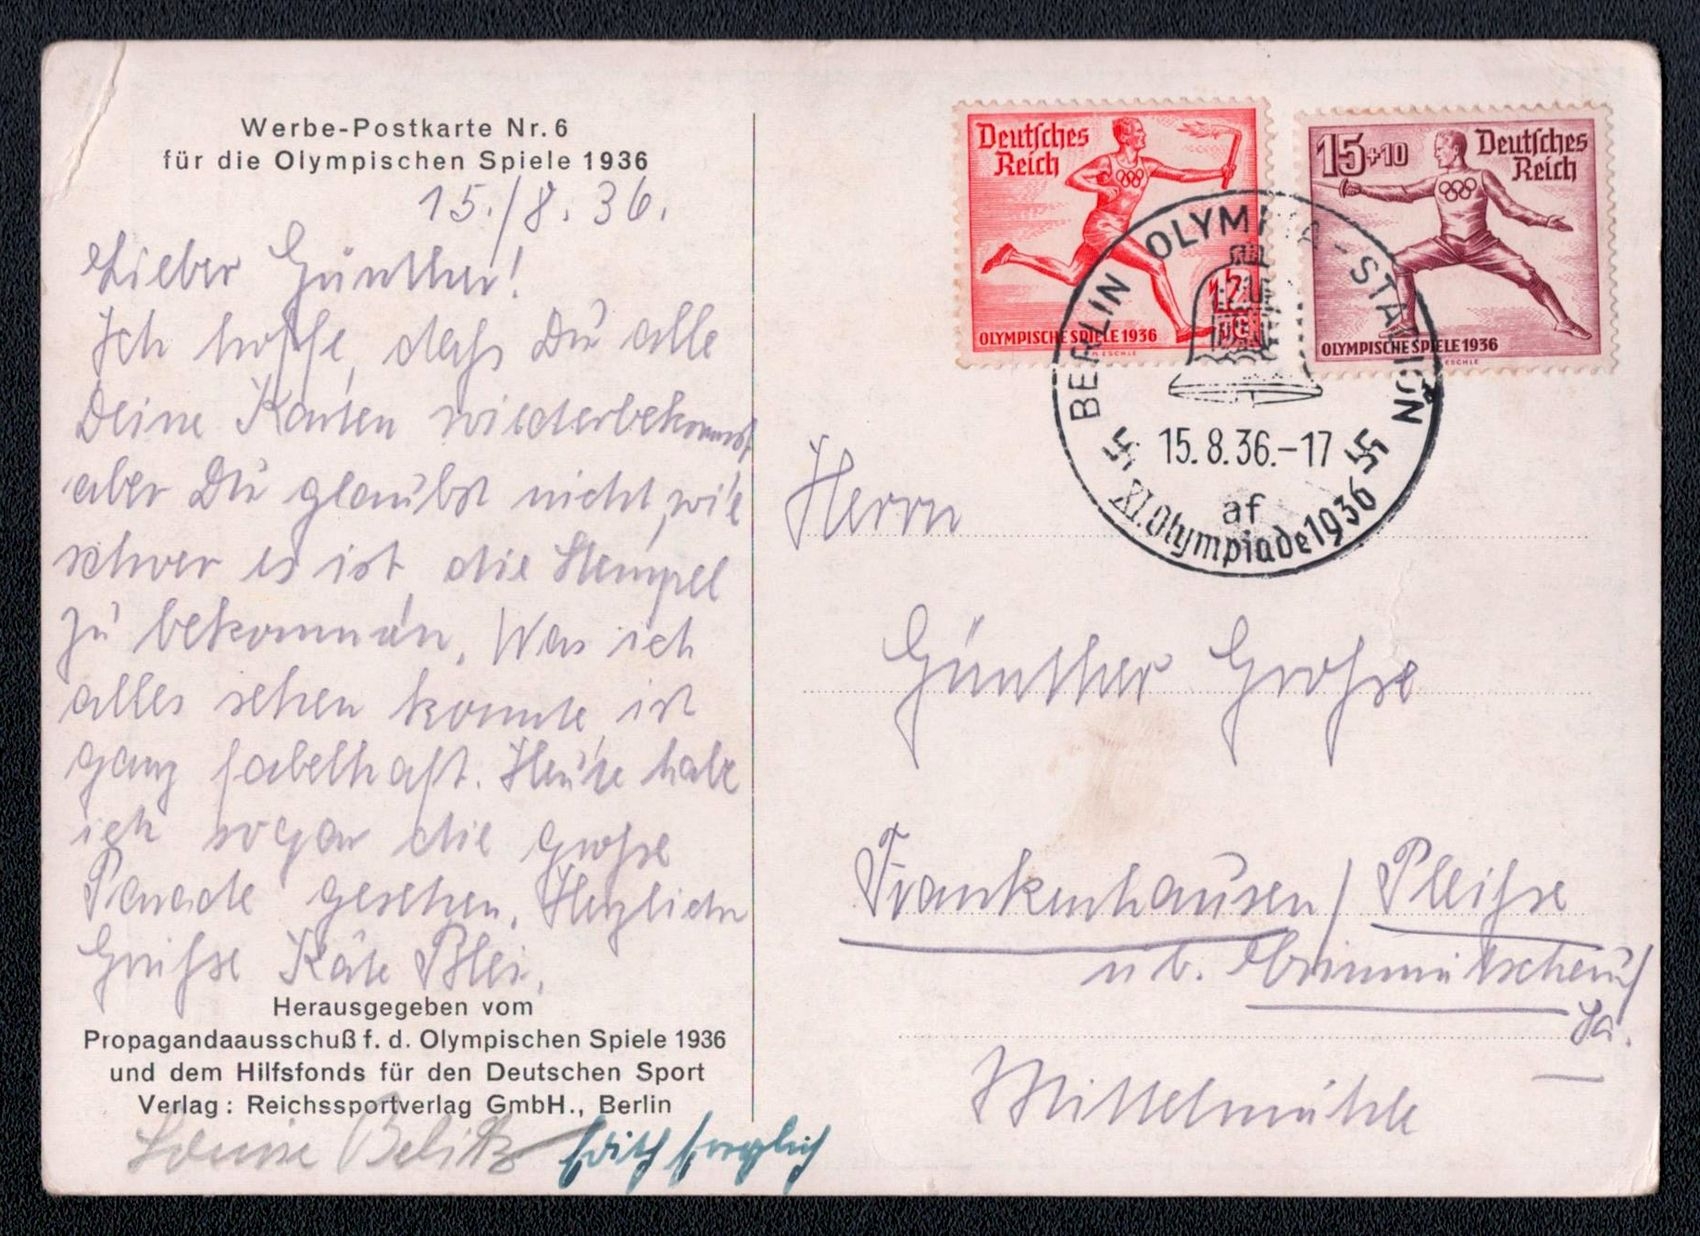 Werbe-Postkarte Nr. 6
für die Olympischen Spiele 1936
15./8. 36.
Lieber Günther!
Ich hoffe, daß Du alle
Deine Karten wiederbekommst,
aber Du glaubst nicht, wie
schwer es ist, die Stempel
zu bekommen. Was ich
alles sehen konnte, ist
ganz fabelhaft. Heute habe
ich sogar die große
Parade gesehen. Herzliche
Grüße Käte Blei.
Herausgegeben vom
Propagandaausschuß f. d. Olympischen Spiele 1936
und dem Hilfsfonds für den Deutschen Sport
Verlag: Reichssportverlag GmbH., Berlin
Louise Belitz
Edith
Deutsches
Reich
OLYMPISCHE SPIELE 1936
M. ESCHLE
15+10
Deutsches
Reich
OLYMPISCHE SPIELE 1936
ESCHLE
BERLIN OLYMPIA-STADION
15.8.36.-17
af
XI. Olympiade 1936
Herrn
Günther Große
Frankenhausen / Pleiße
üb. Crimmitschau
Sa.
Mittelmühle